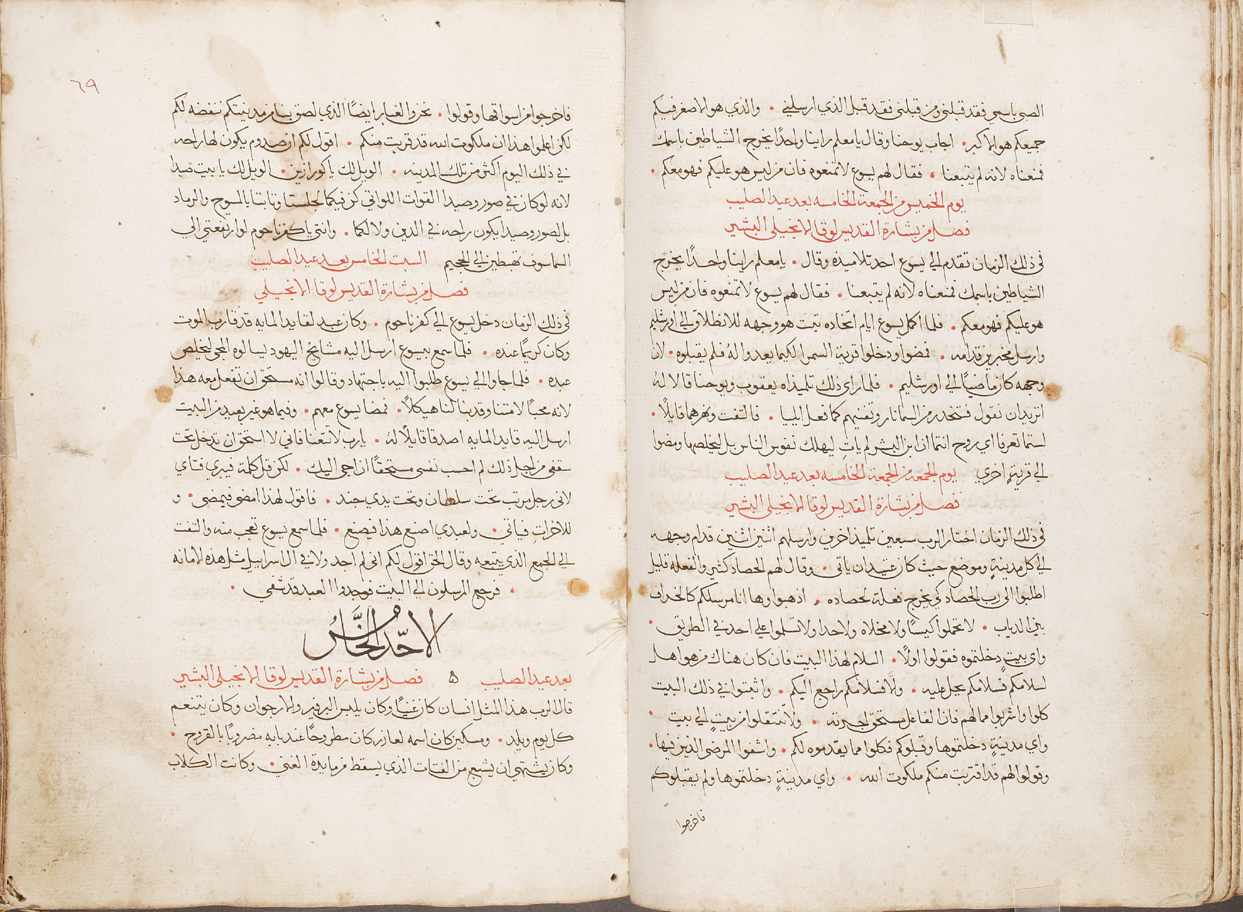 الصبي باسمي فقد قبلني ومن قبلني فقد قبل الذي ارسلني • والذي هو الاصغر فيكم
جميعكم هو الاكبر • اجاب يوحنا وقال يا معلم راينا واحدًا يخرج الشياطين باسمك
فمنعناه لانه لم يتبعنا • فقال لهم يسوع لا تمنعوه فان من ليس هو عليكم فهو معكم •
يوم الخميس من الجمعة الخامسه بعد عيد الصليب
فصل من بشارة القديس لوقا الانجيلي البشير
في ذلك الزمان تقدم الي يسوع احد تلاميذه وقال • يا معلم راينا واحدًا يخرج
الشياطين باسمك فمنعناه لانه لم يتبعنا • فقال لهم يسوع لا تمنعوه فان من ليس
هو عليكم فهو معكم • فلما اكمل يسوع ايام اتخاده تبت هو وجهه للانطلاق الي اورشليم
وارسل مخبرين قدامه • فمضوا ودخلوا قرية السمرا لكيما يعدوا لهُ فلم يقبلوه • لان
وجهه كان ماضيًا الي اورشليم • فلما راي ذلك تلميذاه يعقوب ويوحنا قالا لهُ
اتريد ان نقول فتنحدر من السما نار وتفنيهم كما فعل ايليا • فالتفت ونهرهما قايلًا •
لستما تعرفا اي روح انتما ان ابن البشر لم يات ليهلك نفوس الناس بل ليخلصها ومضوا
الي قرية اخري يوم الجمعة من الجمعة الخامسه بعد عيد الصليب
فصل من بشارة القديس لوقا الانجيلي البشير
في ذلك الزمان اختار الرب سبعين تلميذ اخرين وارسلهم اثنين اثنين قدام وجهه
الي كل مدينة وموضع حيث كان عتيد ان ياتي • وقال لهم الحصاد كثير والفعله قليل
اطلبوا الي رب الحصاد كي يخرج فعلة لحصاده • اذهبوا وها انا مرسلكم كالخراف
بين الدياب • لا تحملوا كيسًا ولا مخلاه ولا حدا ولا تسلموا علي احد في الطريق •
واي بيتٍ دخلتموه فقولوا اولًا • السلام لهذا البيت فان كان هناك من هو اهل
لسلامكم فسلامكم يحل عليه • والا فسلامكم راجع اليكم • واثبتوا في ذلك البيت
كلوا واشربوا مما لهم فان الفاعل مستحق اجرته • ولا تنتقلوا من بيتٍ الي بيت •
واي مدينةٍ دخلتموها وقبلوكم فكلوا مما يقدموه لكم • واشفوا المرضي الذين فيها •
وقولوا لهم قد اقتربت منكم ملكوت الله • واي مدينةٍ دخلتموها ولم يقبلوكم
فاخرجوا
٦٩
فاخرجوا من اسواقها وقولوا • نحن والغبار ايضًا الذي لصق بنا من مدينتكم ننفضه لكم
لكن اعلموا هذا ان ملكوت الله قد قربت منكم • اقول لكم ان صدوم يكون لها راحه
في ذلك اليوم اكثر من تلك المدينه • الويل لك يا كورازين • الويل لك يا بيت صيدا
لانه لو كان في صور وصيدا القوات اللواتي كن فيكما لجلستا وتابتا بالمسوح والرماد
بل لصور وصيدا يكون راحه في الدين ولا لكما • وانتي يا كفرناحوم لو ارتفعتي الي
السما سوف تهبطين الي الجحيم السبت الخامس بعد عيد الصليب
فصل من بشارة القديس لوقا الانجيلي
في ذلك الزمان دخل يسوع الي كفرناحوم • وكان عبد لقايد المايه قد قارب الموت
وكان كريمًا عنده • فلما سمع بيسوع ارسل اليه مشايخ اليهود يسالوه المجي ليخلص
عبده • فلما جاوا الي يسوع طلبوا اليه باجتهاد وقالوا انه مستحق ان تفعل معه هذا
لانه محبًا لامتنا وقد بنا لنا هيكلًا • فمضا يسوع معهم • وفيما هو غير بعيد من البيت
ارسل اليه قايد المايه اصدقا قايلًا له • يا رب لا تتعنا فاني لا استحق ان تدخل تحت
سقفي من اجل ذلك لم احسب نفسي مستحقًا ان اجي اليك • لكن قل كلمة فيبري فتاي
لاني رجل مرتب تحت سلطان وتحت يدي جند • فاقول لهذا امض فيمضي • و
للاخر ات فياتي • ولعبدي اصنع هذا فيصنع • فلما سمع يسوع تعجب منه والتفت
الي الجمع الذي يتبعه وقال الحق اقول لكم اني لم اجد ولا في ال اسراييل مثل هذه الامانه
• فرجع المرسلون الي البيت فوجدوا العبد قد شفي •
الاحد الخامس
بعد عيد الصليب ۵ فصل من بشارة القديس لوقا الانجيلي البشير
قال الرب هذا المثل انسان كان غنيًا وكان يلبس البرفير والارجوان وكان يتنعم
كل يوم ويلد • ومسكين كان اسمه لعازر كان مطروحًا عند بابه مضروبًا بالقروح •
وكان يشتهي ان يشبع من الفتات الذي يسقط من مايدة الغني • وكانت الكلاب